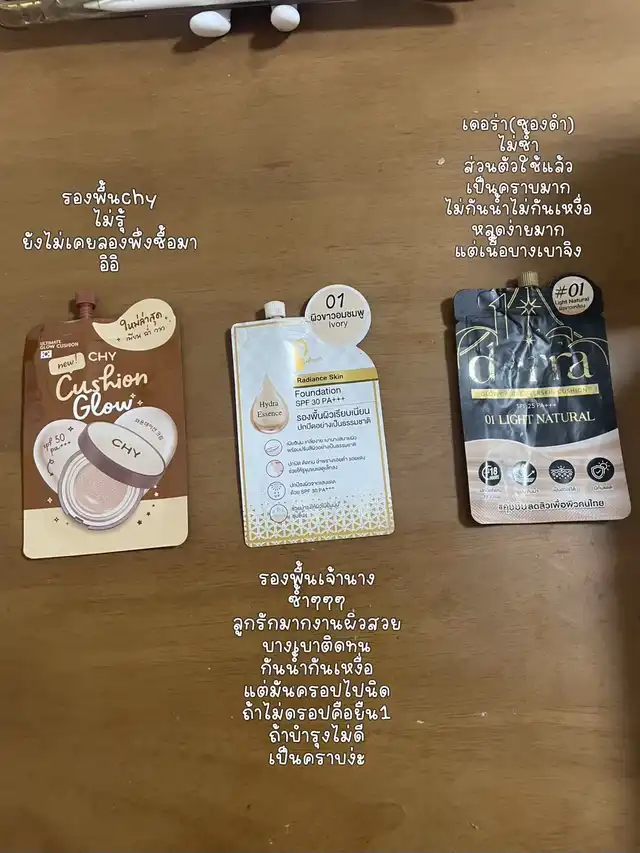 เดอร่า(ซองดำ)
ไม่ซ้ำ
ส่วนตัวใช้แล้ว
เป็นคราบมาก
ไม่กันน้ำไม่กันเหงื่อ
หลุดง่ายมาก
แต่เนื้อบางเบาจริง
รองพื้นchy
ไม่รุ้
ยังไม่เคยลองพึ่งซื้อมา
อิอิ
ULTIMATE
GLOW CUSHION
new!
CHY
Cushion
Glow
spf 50
PA+++
CHY
01
ผิวขาวอมชมพู
Ivory
Radiance Skin
Hydra
Essence
Foundation
SPF 30 PA+++
รองพื้นผิวเรียบเนียน
ปกปิดอย่างเป็นธรรมชาติ
#01
Light Natural
SPF 25 PA++++
01 LIGHT NATURAL
#คุมมันลดสิวเพื่อผิวคนไทย
รองพื้นเจ้านาง
ซ้ำๆๆๆ
ลูกรักมากงานผิวสวย
บางเบาติดทน
กันน้ำกันเหงื่อ
แต่มันครอปไปนิด
ถ้าไม่ดรอปคือยืน1
ถ้าบำรุงไม่ดี
เป็นคราบง่ะ